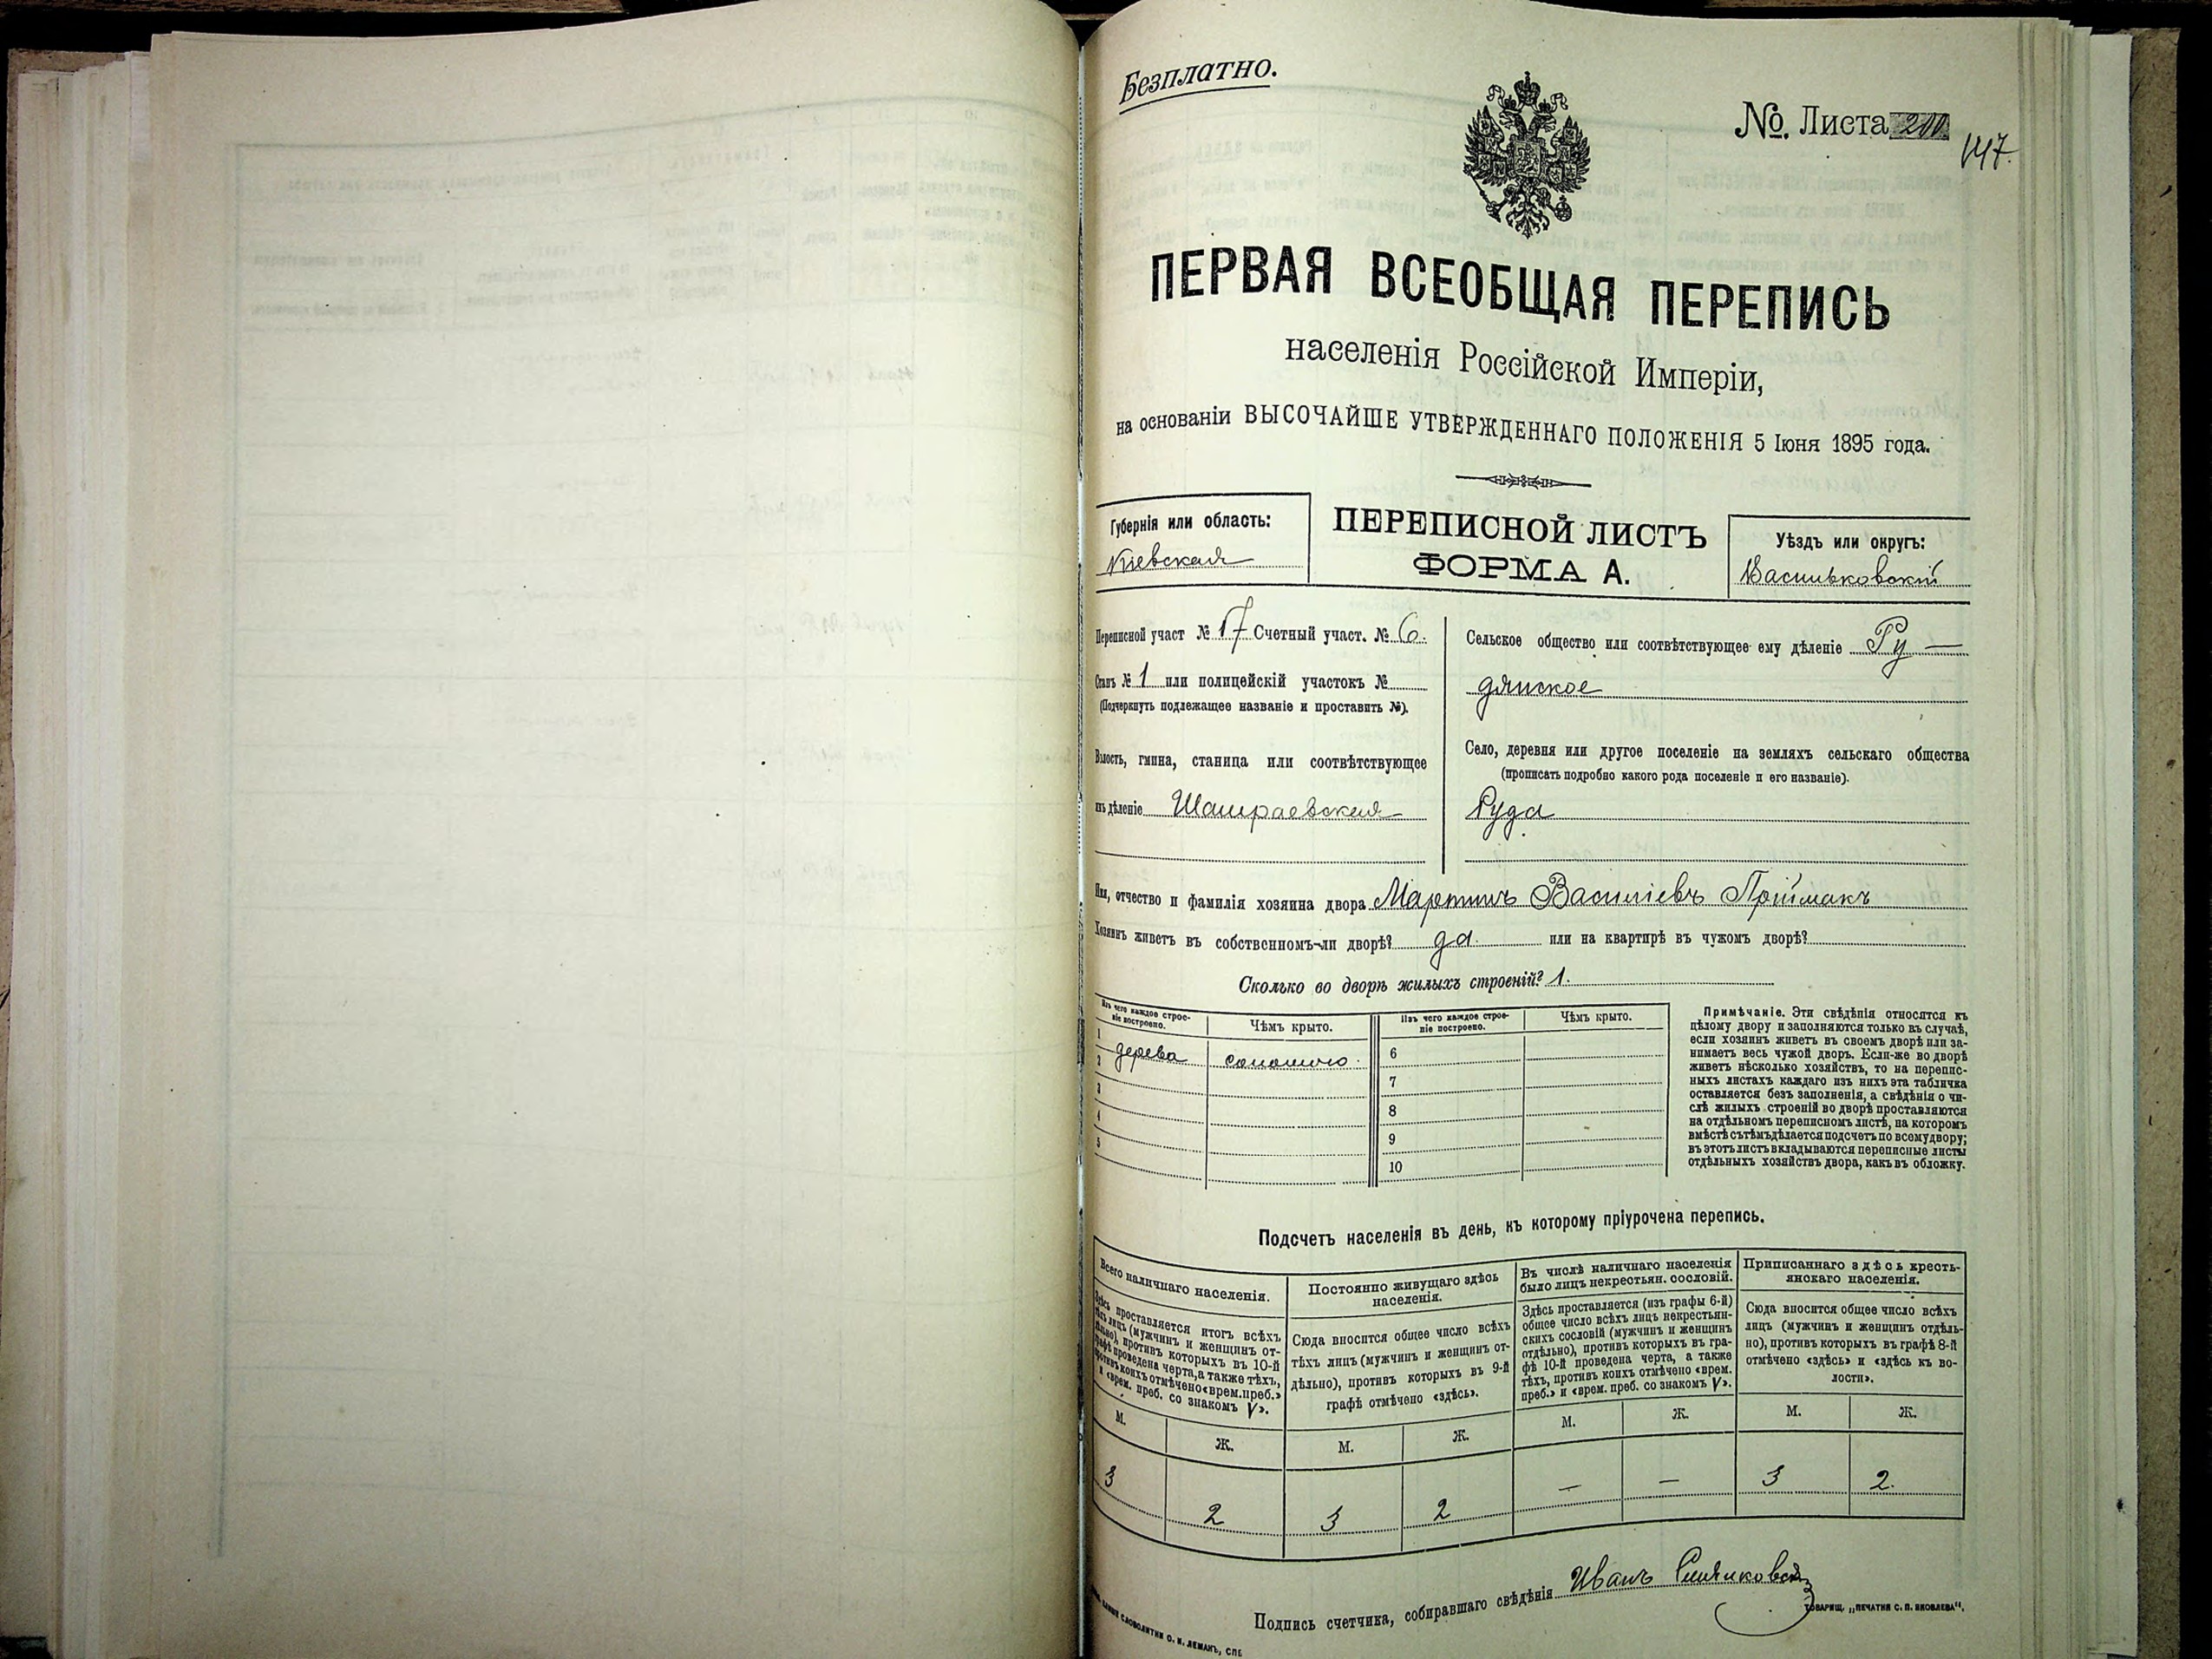 Безплатно.
№. Листа 200
147.
ПЕРВАЯ ВСЕОБЩАЯ ПЕРЕПИСЬ
населенія Россійской Имперіи,
на основаніи ВЫСОЧАЙШЕ УТВЕРЖДЕННАГО ПОЛОЖЕНІЯ 5 Іюня 1895 года.
Губернія или область:
Кіевская
ПЕРЕПИСНОЙ ЛИСТЪ
ФОРМА А.
Уѣздъ или округъ:
Васильковскій
Переписной участ № 17 Счетный участ. № 6.
Станъ № 1 или полицейскій участокъ №
(Подчеркнуть подлежащее названіе и проставить №).
Волость, гмина, станица или соотвѣтствующее
имъ дѣленіе Шамраевская
Сельское общество или соотвѣтствующее ему дѣленіе Ру —
дянское
Село, деревня или другое поселеніе на земляхъ сельскаго общества
(прописать подробно какого рода поселеніе и его названіе).
Руда
Имя, отчество и фамилія хозяина двора Мартинъ Василіевъ Пріймакъ
Хозяинъ живетъ въ собственномъ-ли дворѣ? да. или на квартирѣ въ чужомъ дворѣ?
Сколько во дворѣ жилыхъ строеній? 1.
Изъ чего каждое строе-
ніе построено.
Чѣмъ крыто.
1 дерева
соломою.
2
3
4
5
Изъ чего каждое строе-
ніе построено.
Чѣмъ крыто.
6
7
8
9
10
Примѣчаніе. Эти свѣдѣнія относятся къ
цѣлому двору и заполняются только въ случаѣ,
если хозяинъ живетъ въ своемъ дворѣ или за-
нимаетъ весь чужой дворъ. Если-же во дворѣ
живетъ нѣсколько хозяйствъ, то на перепис-
ныхъ листахъ каждаго изъ нихъ эта табличка
оставляется безъ заполненія, а свѣдѣнія о чи-
слѣ жилыхъ строеній во дворѣ проставляются
на отдѣльномъ переписномъ листѣ, на которомъ
вмѣстѣ съ тѣмъ дѣлается подсчетъ по всему двору;
въ этотъ листъ вкладываются переписные листы
отдѣльныхъ хозяйствъ двора, какъ въ обложку.
Подсчетъ населенія въ день, къ которому пріурочена перепись.
Всего наличнаго населенія.
Здѣсь проставляется итогъ всѣхъ
тѣхъ лицъ (мужчинъ и женщинъ от-
дѣльно), противъ которыхъ въ 10-й
графѣ проведена черта, а также тѣхъ,
противъ коихъ отмѣчено «врем. преб.»
и «врем. преб. со знакомъ V».
М.
Ж.
3
2
Постоянно живущаго здѣсь
населенія.
Сюда вносится общее число всѣхъ
тѣхъ лицъ (мужчинъ и женщинъ от-
дѣльно), противъ которыхъ въ 9-й
графѣ отмѣчено «здѣсь».
М.
Ж.
3
2
Въ числѣ наличнаго населенія
было лицъ некрестьян. сословій.
Здѣсь проставляется (изъ графы 6-й)
общее число всѣхъ лицъ некрестьян-
скихъ сословій (мужчинъ и женщинъ
отдѣльно), противъ которыхъ въ гра-
фѣ 10-й проведена черта, а также
тѣхъ, противъ коихъ отмѣчено «врем.
преб.» и «врем. преб. со знакомъ V».
М.
Ж.
—
—
Приписаннаго здѣсь кресть-
янскаго населенія.
Сюда вносится общее число всѣхъ
лицъ (мужчинъ и женщинъ отдѣль-
но), противъ которыхъ въ графѣ 8-й
отмѣчено «здѣсь» и «здѣсь къ во-
лости».
М.
Ж.
3
2.
Подпись счетчика, собиравшаго свѣдѣнія Иванъ
СЛОВОЛИТНИ О. И. ЛЕМАНЪ, СПБ
ТОВАРИЩ. „ПЕЧАТНЯ С. П. ЯКОВЛЕВА“.